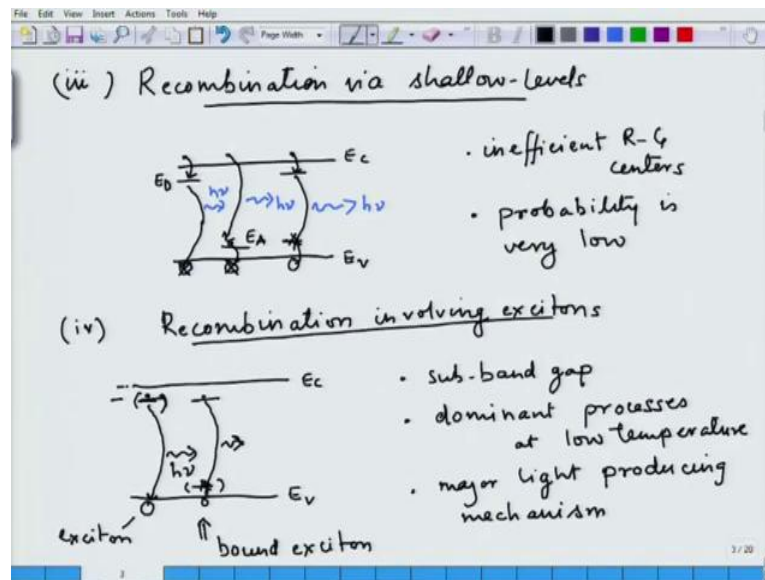 File Edit View Insert Actions Tools Help
Page Width
B I
(iii) Recombination via shallow-levels
Ec
ED
hν
hν
hν
EA
Ev
• inefficient R-G
centers
• probability is
very low
(iv) Recombination involving excitons
Ec
hν
Ev
exciton
bound exciton
• sub-band gap
• dominant processes
at low temperature
• major light producing
mechanism
3
3/20